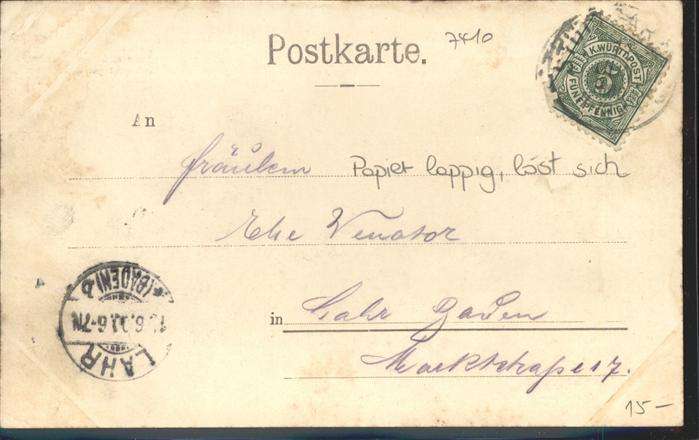 Postkarte. 7410
K. WÜRTT. POST
FÜNF PFENNIG
An
Fräulein Papier lappig, löst sich
Venator
in Lahr Baden
Marktstraße 17.
LAHR
(BADEN)
6-7N
15–